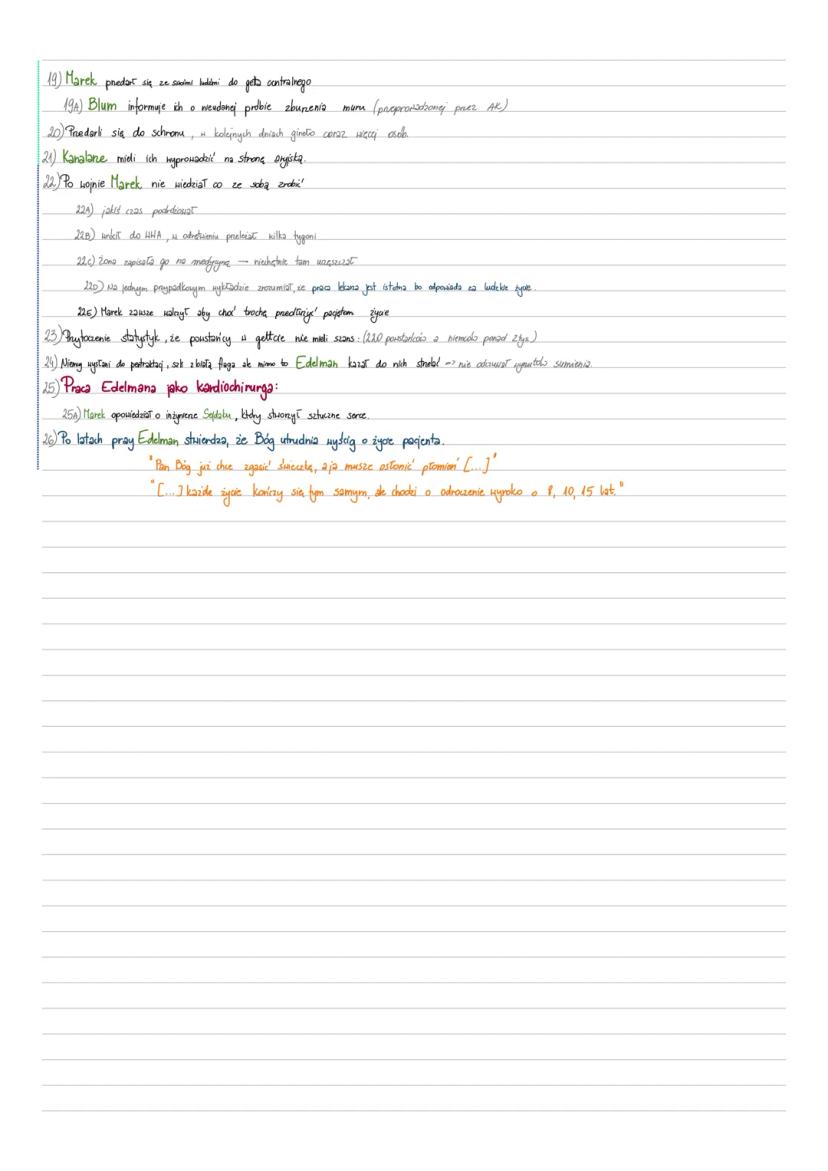 19) Marek przedarł się ze swoimi ludźmi do getta centralnego
19A) Blum informuje ich o nieudanej próbie zburzenia muru (przeprowadzonej przez AK)
20) Przedarli się do schronu, w kolejnych dniach ginęło coraz więcej osób.
21) Kanalarze mieli ich wyprowadzić na stronę aryjską.
22) Po wojnie Marek nie wiedział co ze sobą zrobić
22A) jakiś czas podróżował
22B) wrócił do WWA, w odrętwieniu przeleżał kilka tygoni
22C) Żona zapisała go na medycynę → niechętnie tam uczęszczał
22D) Na jednym przypadkowym wykładzie zrozumiał, że praca lekarza jest istotna bo odpowiada za ludzkie życie.
22E) Marek zawsze walczył aby choć trochę przedłużyć pacjętom życie
23) Przytoczenie statystyk, że powstańcy w gettcie nie mieli szans: (220 powstańców a niemców ponad 2tyś.)
24) Niemcy wysłani do pertraktacji, szli z białą flagą ale mimo to Edelman kazał do nich strzelać -> nie odczuwał wyrzutów sumienia.
25) Praca Edelmana jako kardiochirurga:
25A) Marek opowiedział o inżynierze Sejdaku, który stworzył sztuczne serce.
26) Po latach pracy Edelman stwierdza, że Bóg utrudnia wyścig o życie pacjenta.
"Pan Bóg już chce zgasić świeczkę, a ja muszę osłonić płomień [...]"
"[...] każde życie kończy się tym samym, ale chodzi o odroczenie wyroku o 8, 10, 15 lat."